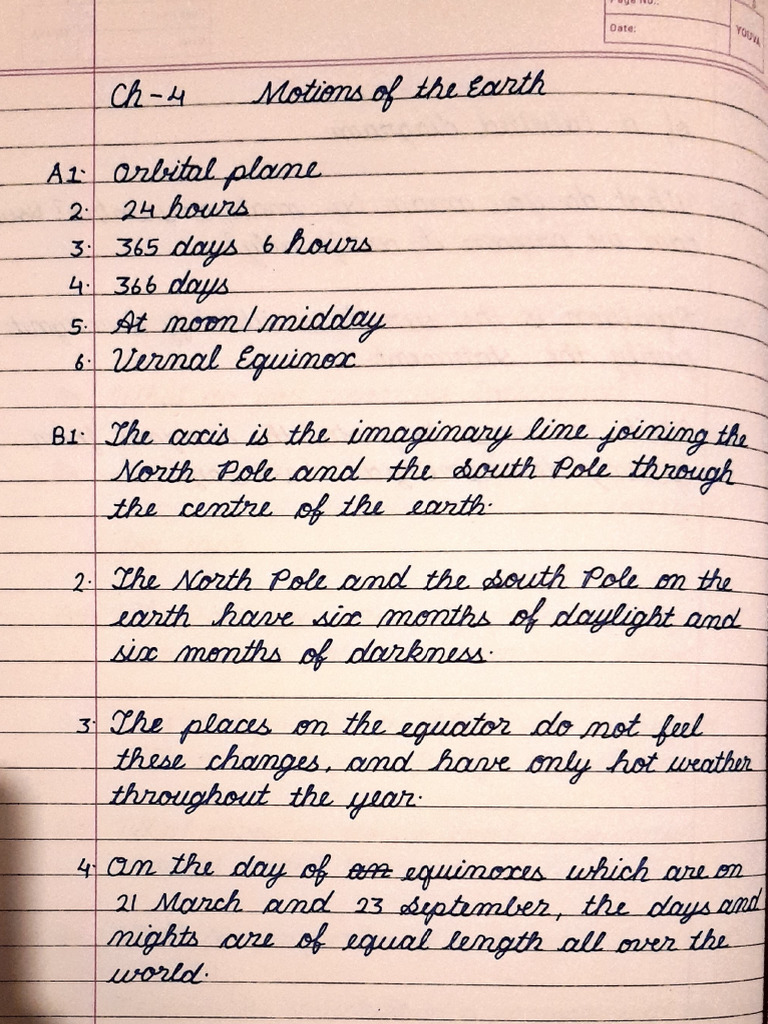 Page No.:
Date:
YOUVA
Ch-4 Motions of the Earth
A1. Orbital plane
2. 24 hours
3. 365 days 6 hours
4. 366 days
5. At noon/midday
6. Vernal Equinox
B1. The axis is the imaginary line joining the
North Pole and the South Pole through
the centre of the earth.
2. The North Pole and the South Pole on the
earth have six months of daylight and
six months of darkness.
3. The places on the equator do not feel
these changes, and have only hot weather
throughout the year.
4. On the day of an equinoxes which are on
21 March and 23 September, the days and
nights are of equal length all over the
world.